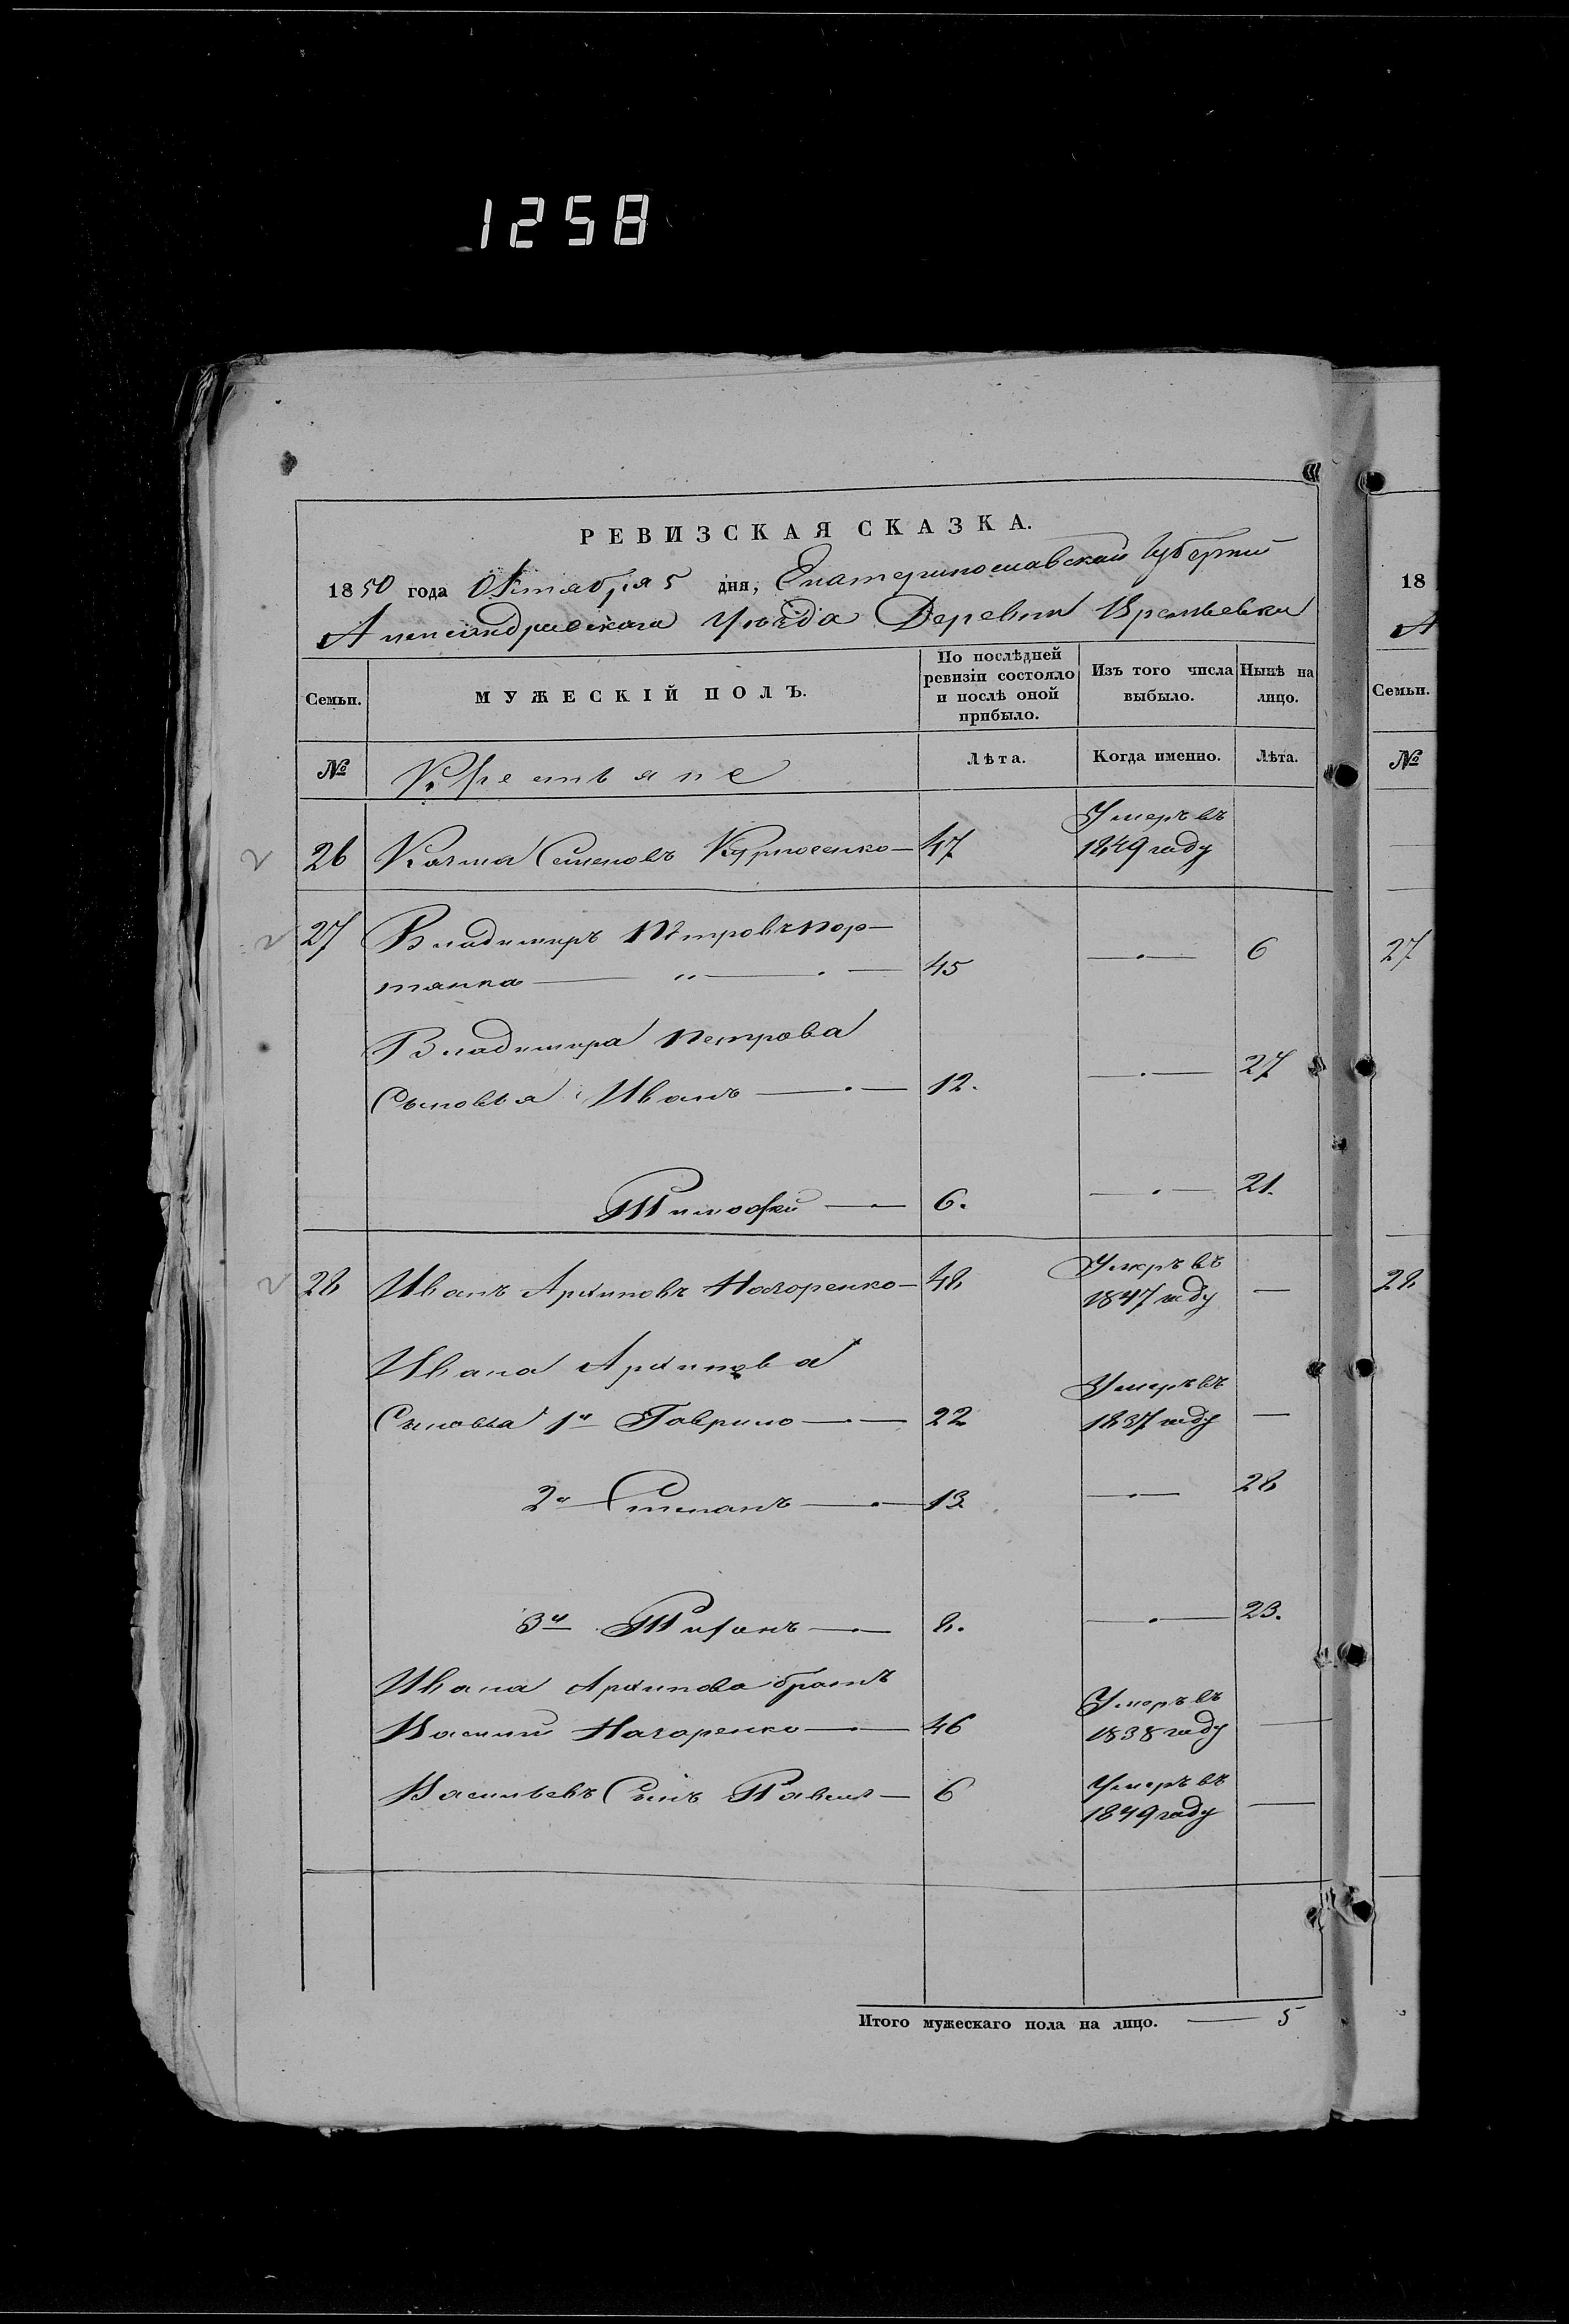 1258
РЕВИЗСКАЯ СКАЗКА.
1850 года Октября 5 дня, Екатеринославской Губернии
Александрійскаго Уѣзда Деревни Времьевки
Семьи. МУЖЕСКІЙ ПОЛЪ. По послѣдней ревизіи состояло и послѣ оной прибыло. Изъ того числа выбыло. Нынѣ на лицо.
№ Крестьяне Лѣта. Когда именно. Лѣта.
26 Козма Семеновъ 47 Умеръ въ 1849 году
27 Владимиръ Петровъ Пор-
тянка — " — 45 — 6
Владимира Петрова
Сыновья Иванъ — 12. — 27
Тимофей — 6. — 21.
28 Иванъ Архиповъ Нагоренко — 48 Умеръ въ 1847 году —
Ивана Архипова
Сыновья 1й Гаврило — 22 Умеръ въ 1837 году —
2й Степанъ — 13 — 28
3й Тихонъ — 8. — 23.
Ивана Архипова братъ
Василий Нагоренко — 46 Умеръ въ 1838 году —
Васильевъ Сынъ Павелъ — 6 Умеръ въ 1849 году —
Итого мужескаго пола на лицо. — 5
18
А
Семьи.
№
27
28